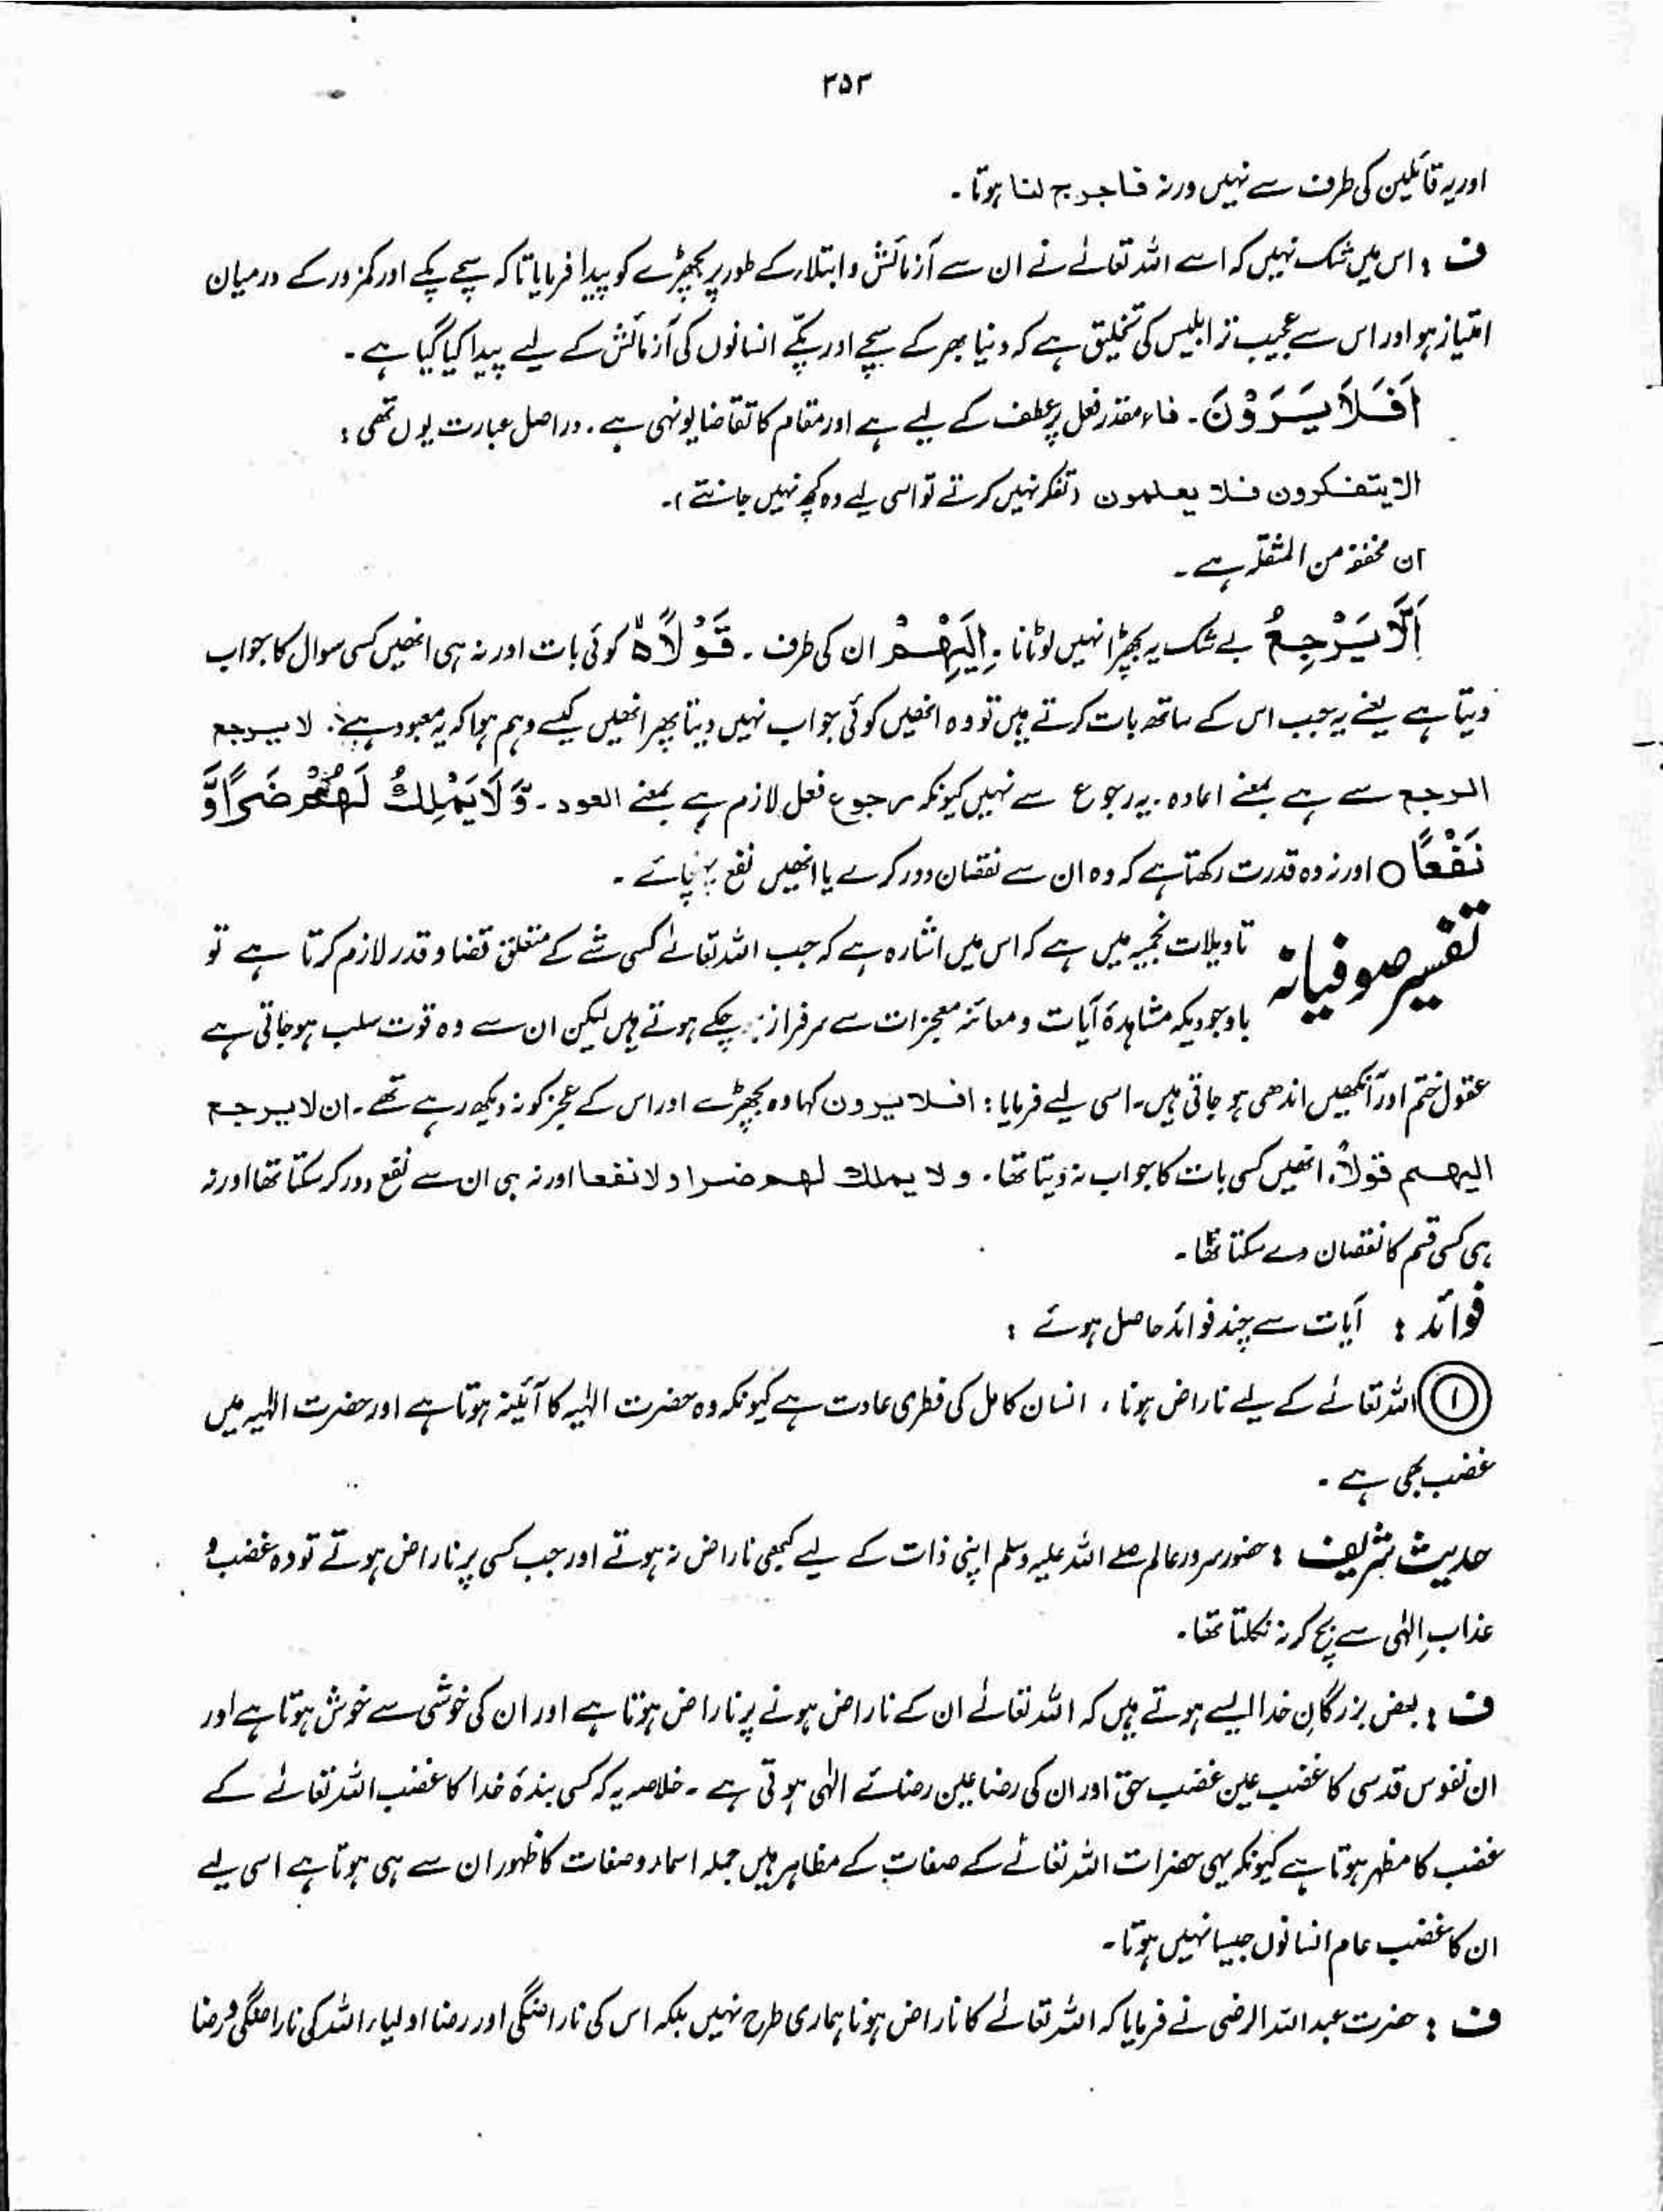 ۳۵۳
اور یہ قائلین کی طرف سے نہیں ورنہ فاجرج لنا ہوتا ۔
ف : اس میں شک نہیں کہ اسے اللہ تعالٰے نے ان سے آزمائش و ابتلاء کے طور پر بچھڑے کو پیدا فرمایا تاکہ سچے پکے اور کمزور کے درمیان
امتیاز ہو اور اس سے عجیب تر ابلیس کی تخلیق ہے کہ دنیا بھر کے سچے اور پکّے انسانوں کی آزمائش کے لیے پیدا کیا گیا ہے ۔
اَفَلَا یَرَوْنَ ۔ فاء مقدر فعل پر عطف کے لیے ہے اور مقام کا تقاضا یونہی ہے ۔ دراصل عبارت یوں تھی :
الا یتفکرون فلا یعلمون (تفکر نہیں کرتے تو اسی لیے وہ کچھ نہیں جانتے)۔
ان مخففہ من المثقلہ ہے ۔
اَلَّا یَرْجِعُ بے شک یہ بچھڑا نہیں لوٹاتا ۔ اِلَیْھِمْ ان کی طرف ۔ قَوْلًا ۙ کوئی بات اور نہ ہی انھیں کسی سوال کا جواب
دیتا ہے یعنے یہ جب اس کے ساتھ بات کرتے ہیں تو وہ انھیں کوئی جواب نہیں دیتا پھر انھیں کیسے وہم ہوا کہ یہ معبود ہے ۔ لا یرجع
الرجع سے ہے بمعنے اعادہ ۔ یہ رجوع سے نہیں کیونکہ رجوع فعل لازم ہے بمعنے العود ۔ وَّلَا یَمْلِکُ لَھُمْ ضَرًّا وَّ
نَفْعًا ○ اور نہ وہ قدرت رکھتا ہے کہ وہ ان سے نقصان دور کرے یا انھیں نفع پہنچائے ۔
تفسیر صوفیانہ تاویلات نجمیہ میں ہے کہ اس میں اشارہ ہے کہ جب اللہ تعالٰے کسی شے کے متعلق قضا و قدر لازم کرتا ہے تو
باوجودیکہ مشاہدۂ آیات و معائنہ معجزات سے سرفراز چکے ہوتے ہیں لیکن ان سے وہ قوت سلب ہو جاتی ہے
عقول ختم اور آنکھیں اندھی ہو جاتی ہیں۔ اسی لیے فرمایا : افلا یرون کہا وہ بچھڑے اور اس کے عجز کو نہ دیکھ رہے تھے ۔ ان لا یرجع
الیھم قولاً انھیں کسی بات کا جواب نہ دیتا تھا ۔ و لا یملک لھم ضرا و لا نفعا اور نہ ہی ان سے نفع دور کر سکتا تھا اور نہ
ہی کسی قسم کا نقصان دے سکتا تھا ۔
فوائد : آیات سے چند فوائد حاصل ہوئے :
۱ اللہ تعالٰے کے لیے ناراض ہونا ، انسان کامل کی فطری عادت ہے کیونکہ وہ حضرت الٰہیہ کا آئینہ ہوتا ہے اور حضرت الٰہیہ میں
غضب بھی ہے ۔
حدیث شریف : حضور سرور عالم صلے اللہ علیہ وسلم اپنی ذات کے لیے کبھی ناراض نہ ہوتے اور جب کسی پر ناراض ہوتے تو وہ غضب و
عذابِ الٰہی سے بچ کر نہ نکلتا تھا ۔
ف : بعض بزرگانِ خدا ایسے ہوتے ہیں کہ اللہ تعالٰے ان کے ناراض ہونے پر ناراض ہوتا ہے اور ان کی خوشی سے خوش ہوتا ہے اور
ان نفوس قدسی کا غضب عین غضب حق اور ان کی رضا عین رضائے الٰہی ہوتی ہے ۔ خلاصہ یہ کہ کسی بندۂ خدا کا غضب اللہ تعالٰے کے
غضب کا مظہر ہوتا ہے کیونکہ یہی حضرات اللہ تعالٰے کے صفات کے مظاہر ہیں جملہ اسماء و صفات کا ظہور ان سے ہی ہوتا ہے اسی لیے
ان کا غضب عام انسانوں جیسا نہیں ہوتا ۔
ف : حضرت عبداللہ الرضی نے فرمایا کہ اللہ تعالٰے کا ناراض ہونا ہماری طرح نہیں بلکہ اس کی ناراضگی اور رضا اولیاء اللہ کی ناراضگی و رضا